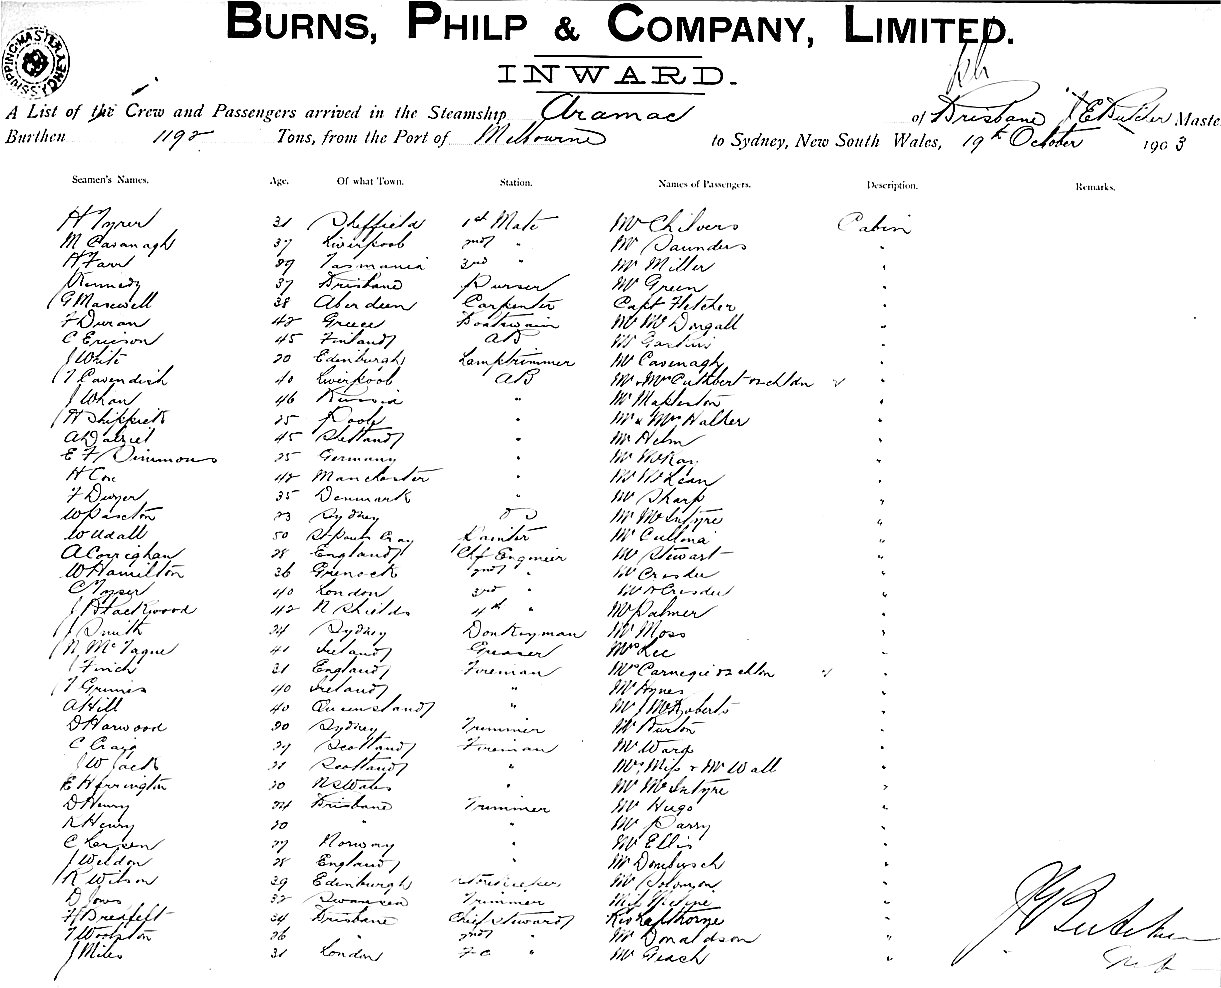 BURNS, PHILP & COMPANY, LIMITED.
INWARD.
SHIPPING MASTER SYDNEY
A List of the Crew and Passengers arrived in the Steamship Aramac of Brisbane J E Butcher Maste
Burthen 1192 Tons, from the Port of Melbourne to Sydney, New South Wales, 19th October 1903
Seamen's Names. Age. Of what Town. Station. Names of Passengers. Description. Remarks.
31 Sheffield 1st Mate Mr Chilvers Cabin
M Cavanagh 37 Liverpool 2nd " Mr Saunders "
H Farr 29 Tasmania 3rd " Mr Miller "
Kennedy 37 Brisbane Purser Mr Green "
G Maxwell 38 Aberdeen Carpenter Capt Fletcher "
F Duran 42 Greece Boatswain Mr McDougall "
C Ericson 45 Finland AB Mr "
J White 20 Edinburgh Lamptrimmer Mr Cavenagh "
T Cavendish 40 Liverpool AB Mr & Mrs Cuthbert & chldn "
J Whan 46 Russia " Mr Mapleston "
H 25 Poole " Mr & Mrs Walker "
A Dalziel 45 Shetland " Mr Helm "
E F Simmons 25 Germany " Mr McKay "
H Cox 42 Manchester " Mr McLean "
F Dwyer 35 Denmark " Mr Sharp "
W Paxton 23 Sydney OS Mr McIntyre "
W Udall 50 St Pauls Cray Painter Mr "
A Corrighan 28 England Chf Engineer Mr Stewart "
W Hamilton 36 Greenock 2nd " "
C 40 London 3rd " "
J Blackwood 42 N Shields 4th " Mr Palmer "
J Smith 24 Sydney Donkeyman Mr Moss "
N McTague 41 Ireland Greaser Mrs Lee "
J Finch 31 England Fireman Mrs Carnegie & chldn "
T Grimes 40 Ireland " Mr Hynes "
A Hill 40 Queensland " Mr J McRoberts "
D Harwood 20 Sydney Trimmer Mr Burton "
C Craig 27 Scotland Fireman Mr Ward "
W Jack 21 Scotland " Mrs, Miss & Mr Wall "
E Herrington 20 NSWales " Mr McIntyre "
D Henry 24 Brisbane Trimmer Mr Hugo "
R Henry 20 " " Mr Parry "
C Larsen 27 Norway " Mr Ellis "
J Weldon 28 England " Mr Dombusch "
R Wilson 39 Edinburgh Storekeeper Mr Solomon "
D Jones 32 Swansea Trimmer Miss "
F Breafelt 34 Brisbane Chief Steward "
T Woolston 26 " 2nd " Mr Donaldson "
J Miles 31 London FC " Mr Geach "
J E Butcher